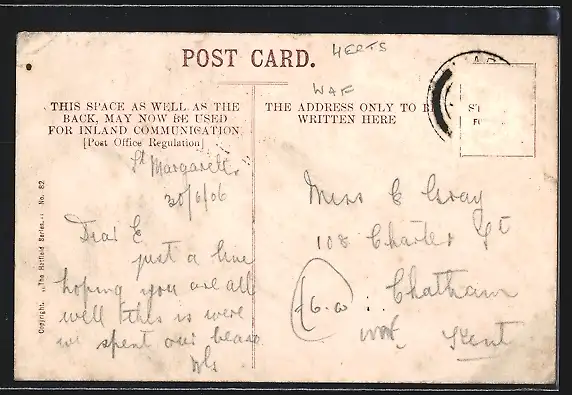 POST CARD.
HERTS
WAF
THIS SPACE AS WELL AS THE
BACK, MAY NOW BE USED
FOR INLAND COMMUNICATION
[Post Office Regulation]
THE ADDRESS ONLY TO BE
WRITTEN HERE
St Margarets
30/6/06
Dear E
just a line
hoping you are all
well this is were
we spent our
Miss E Gray
108 Charter St
Chatham
Kent
Copyright. "The Hatfield Series." No. 82